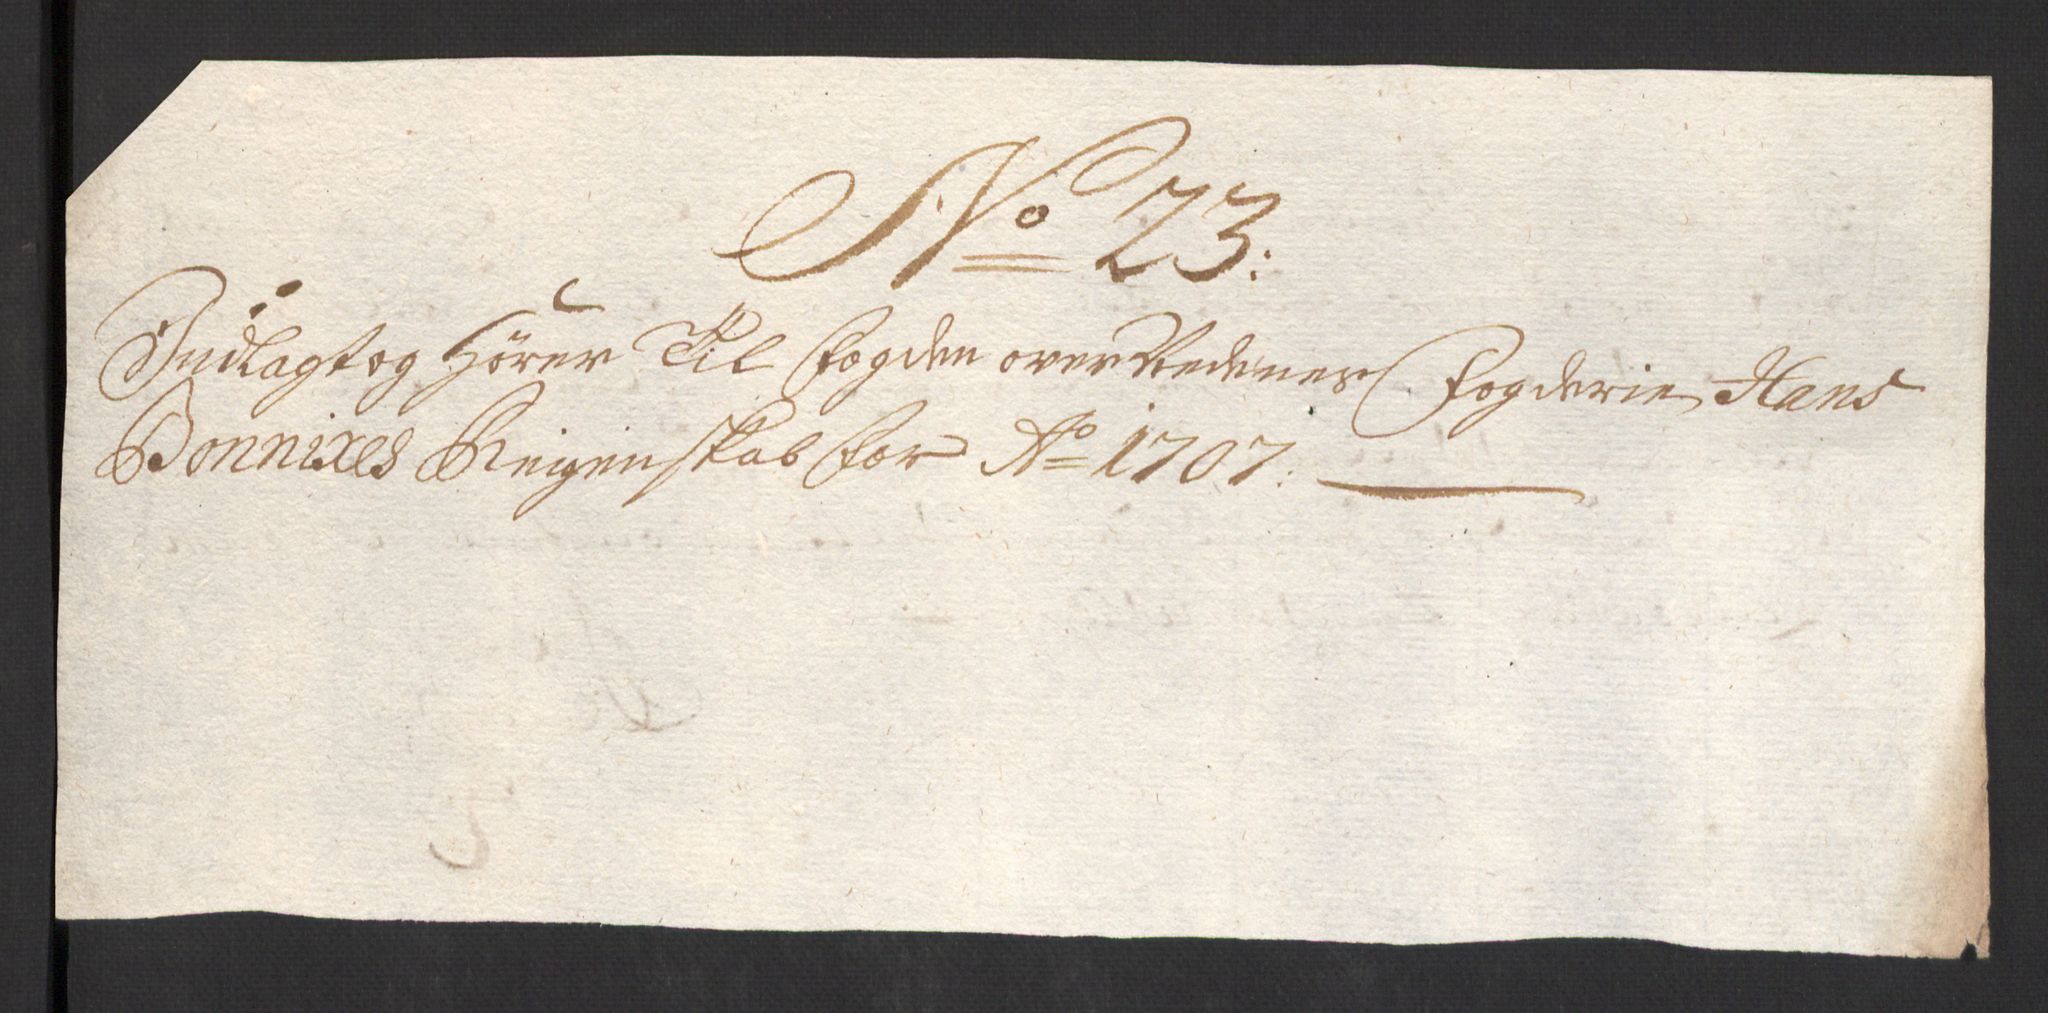 No 23:
Indlagt og hörer Til fogden over Nedenes Fogderie, Hans
Bonnixes Reigenskab for Ao 1707: